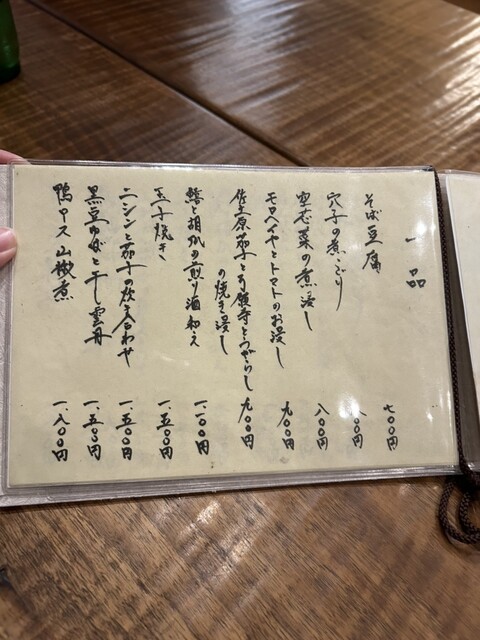 一品
そば豆腐 七〇〇円
穴子の煮こごり 八〇〇円
空芯菜の煮浸し 八〇〇円
モロヘイヤとトマトのお浸し 九〇〇円
佐土原茄子と万願寺とうがらし
の焼き浸し 九〇〇円
鱧と胡瓜の煎り酒和え 一、一〇〇円
玉子焼き 一、五〇〇円
ニシンと茄子の炊き合わせ 一、五〇〇円
黒豆ゆばと干し雲丹 一、五〇〇円
鴨ロース山椒煮 一、八〇〇円